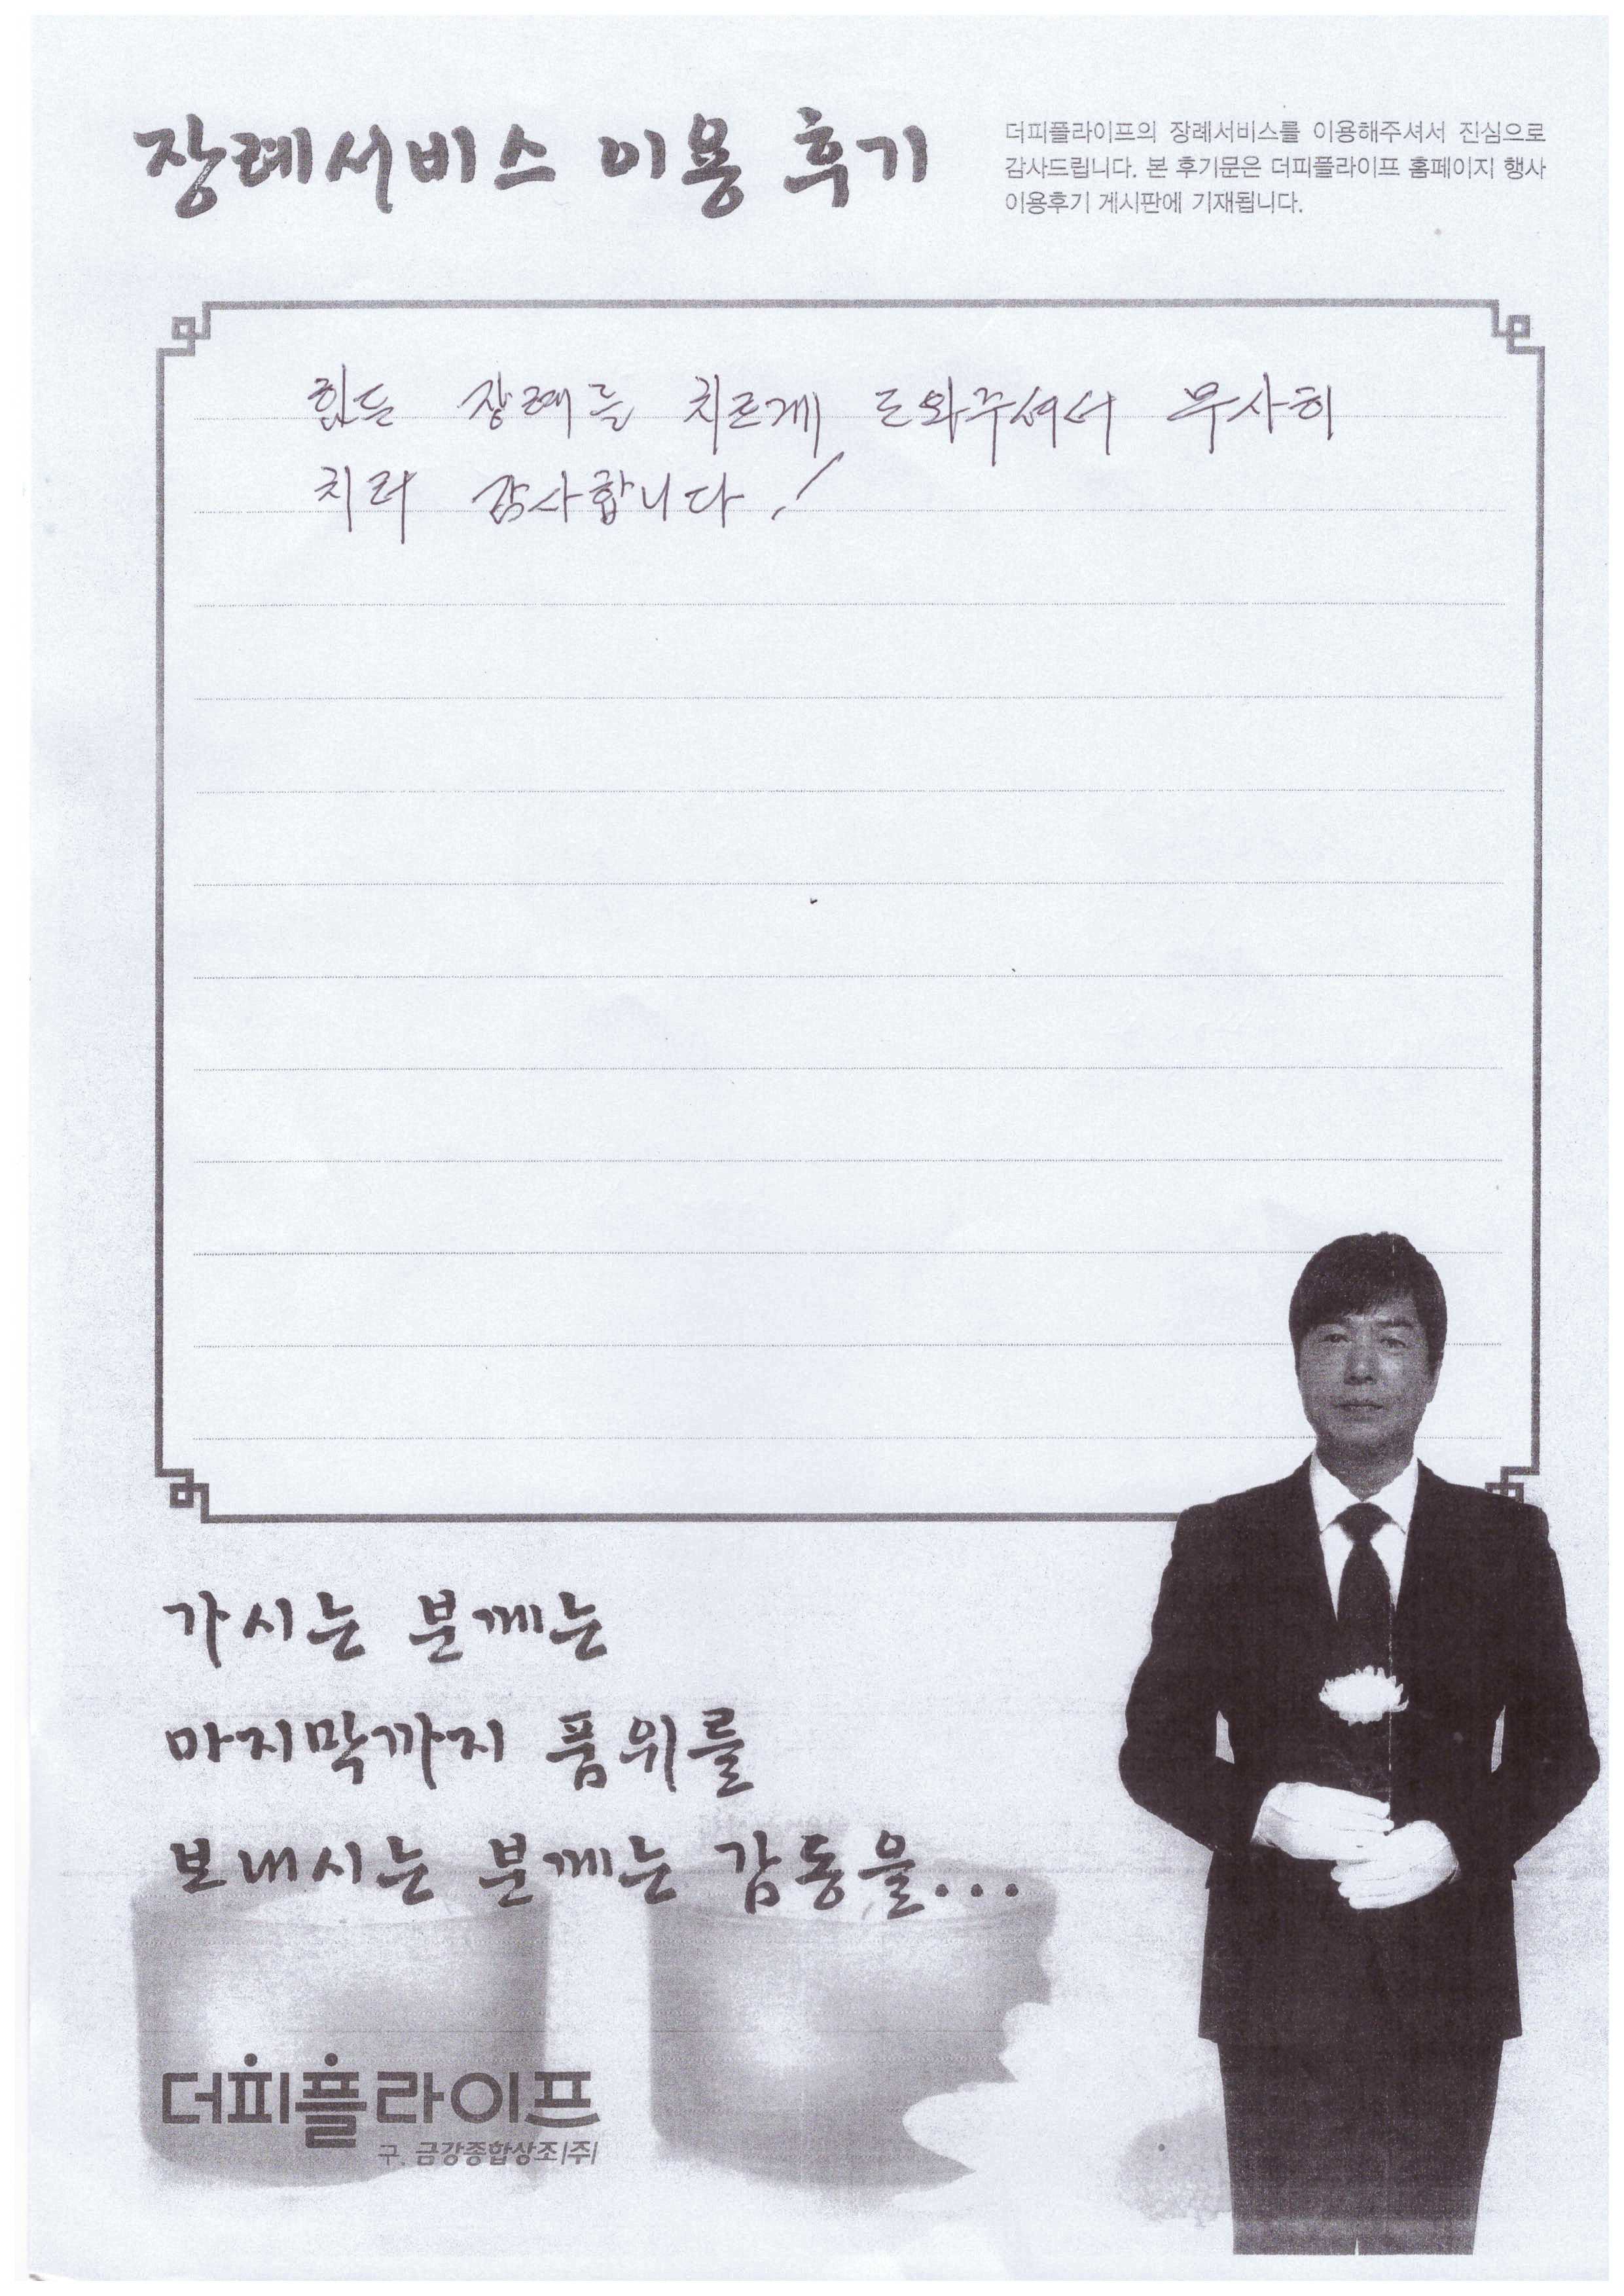 장례서비스 이용 후기
더피플라이프의 장례서비스를 이용해주셔서 진심으로
감사드립니다. 본 후기문은 더피플라이프 홈페이지 행사
이용후기 게시판에 기재됩니다.
힘든 장례를 치르게 도와주셔서 무사히
치러 감사합니다!
가시는 분께는
마지막까지 품위를
보내시는 분께는 감동을...
더피플라이프
구. 금강종합상조(주)